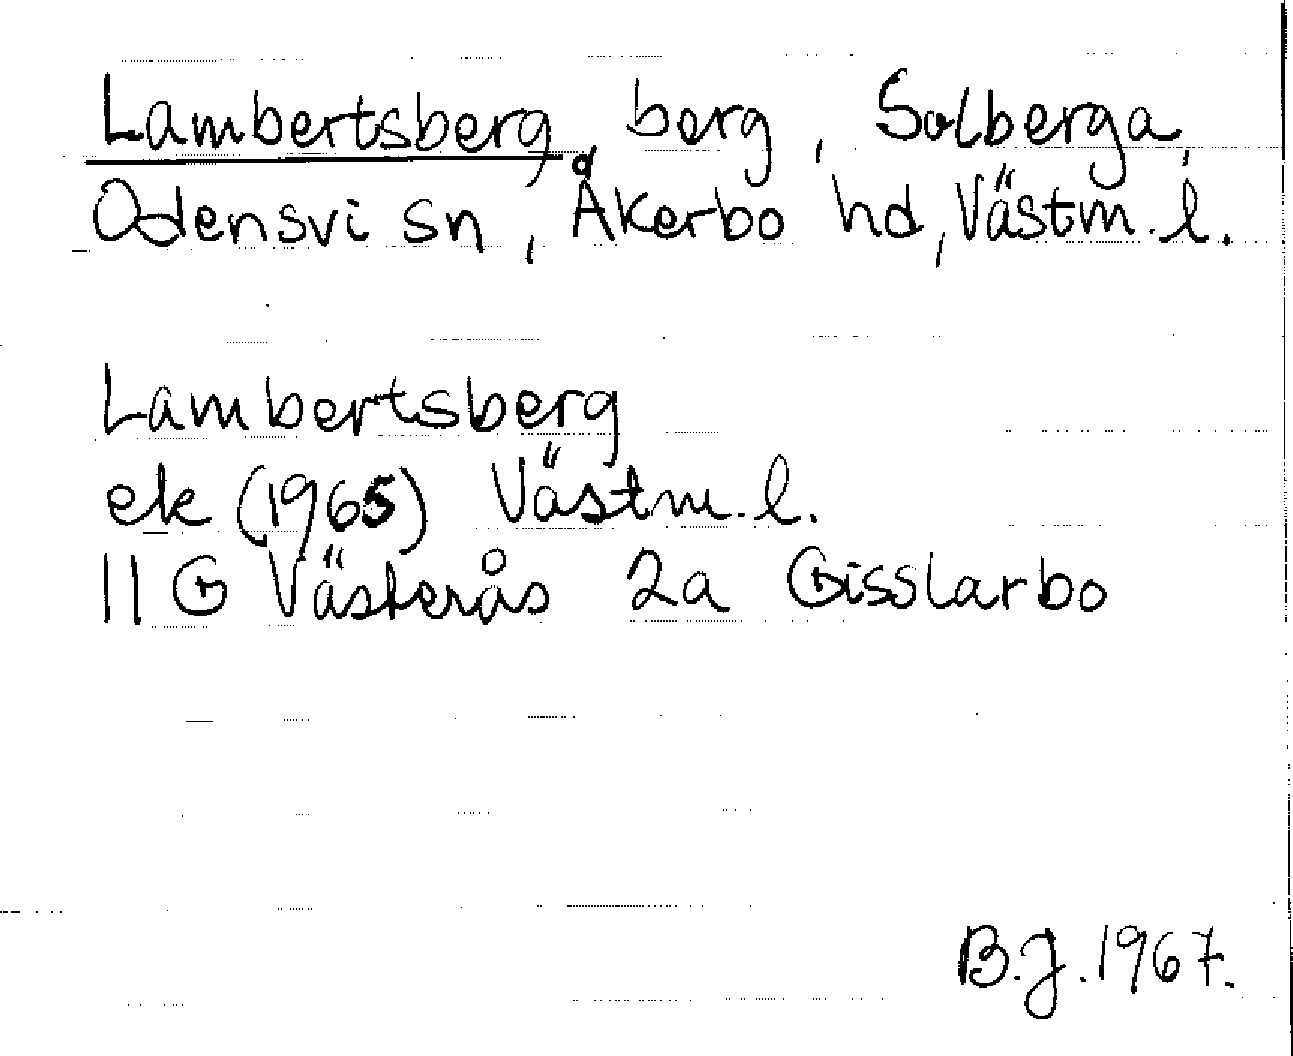 Lambertsberg, berg, Solberga,
Odensvi sn, Åkerbo hd, Västm. l.
Lambertsberg
ek (1965) Västm. l.
11 G Västerås 2a Gisslarbo
B.J. 1967.